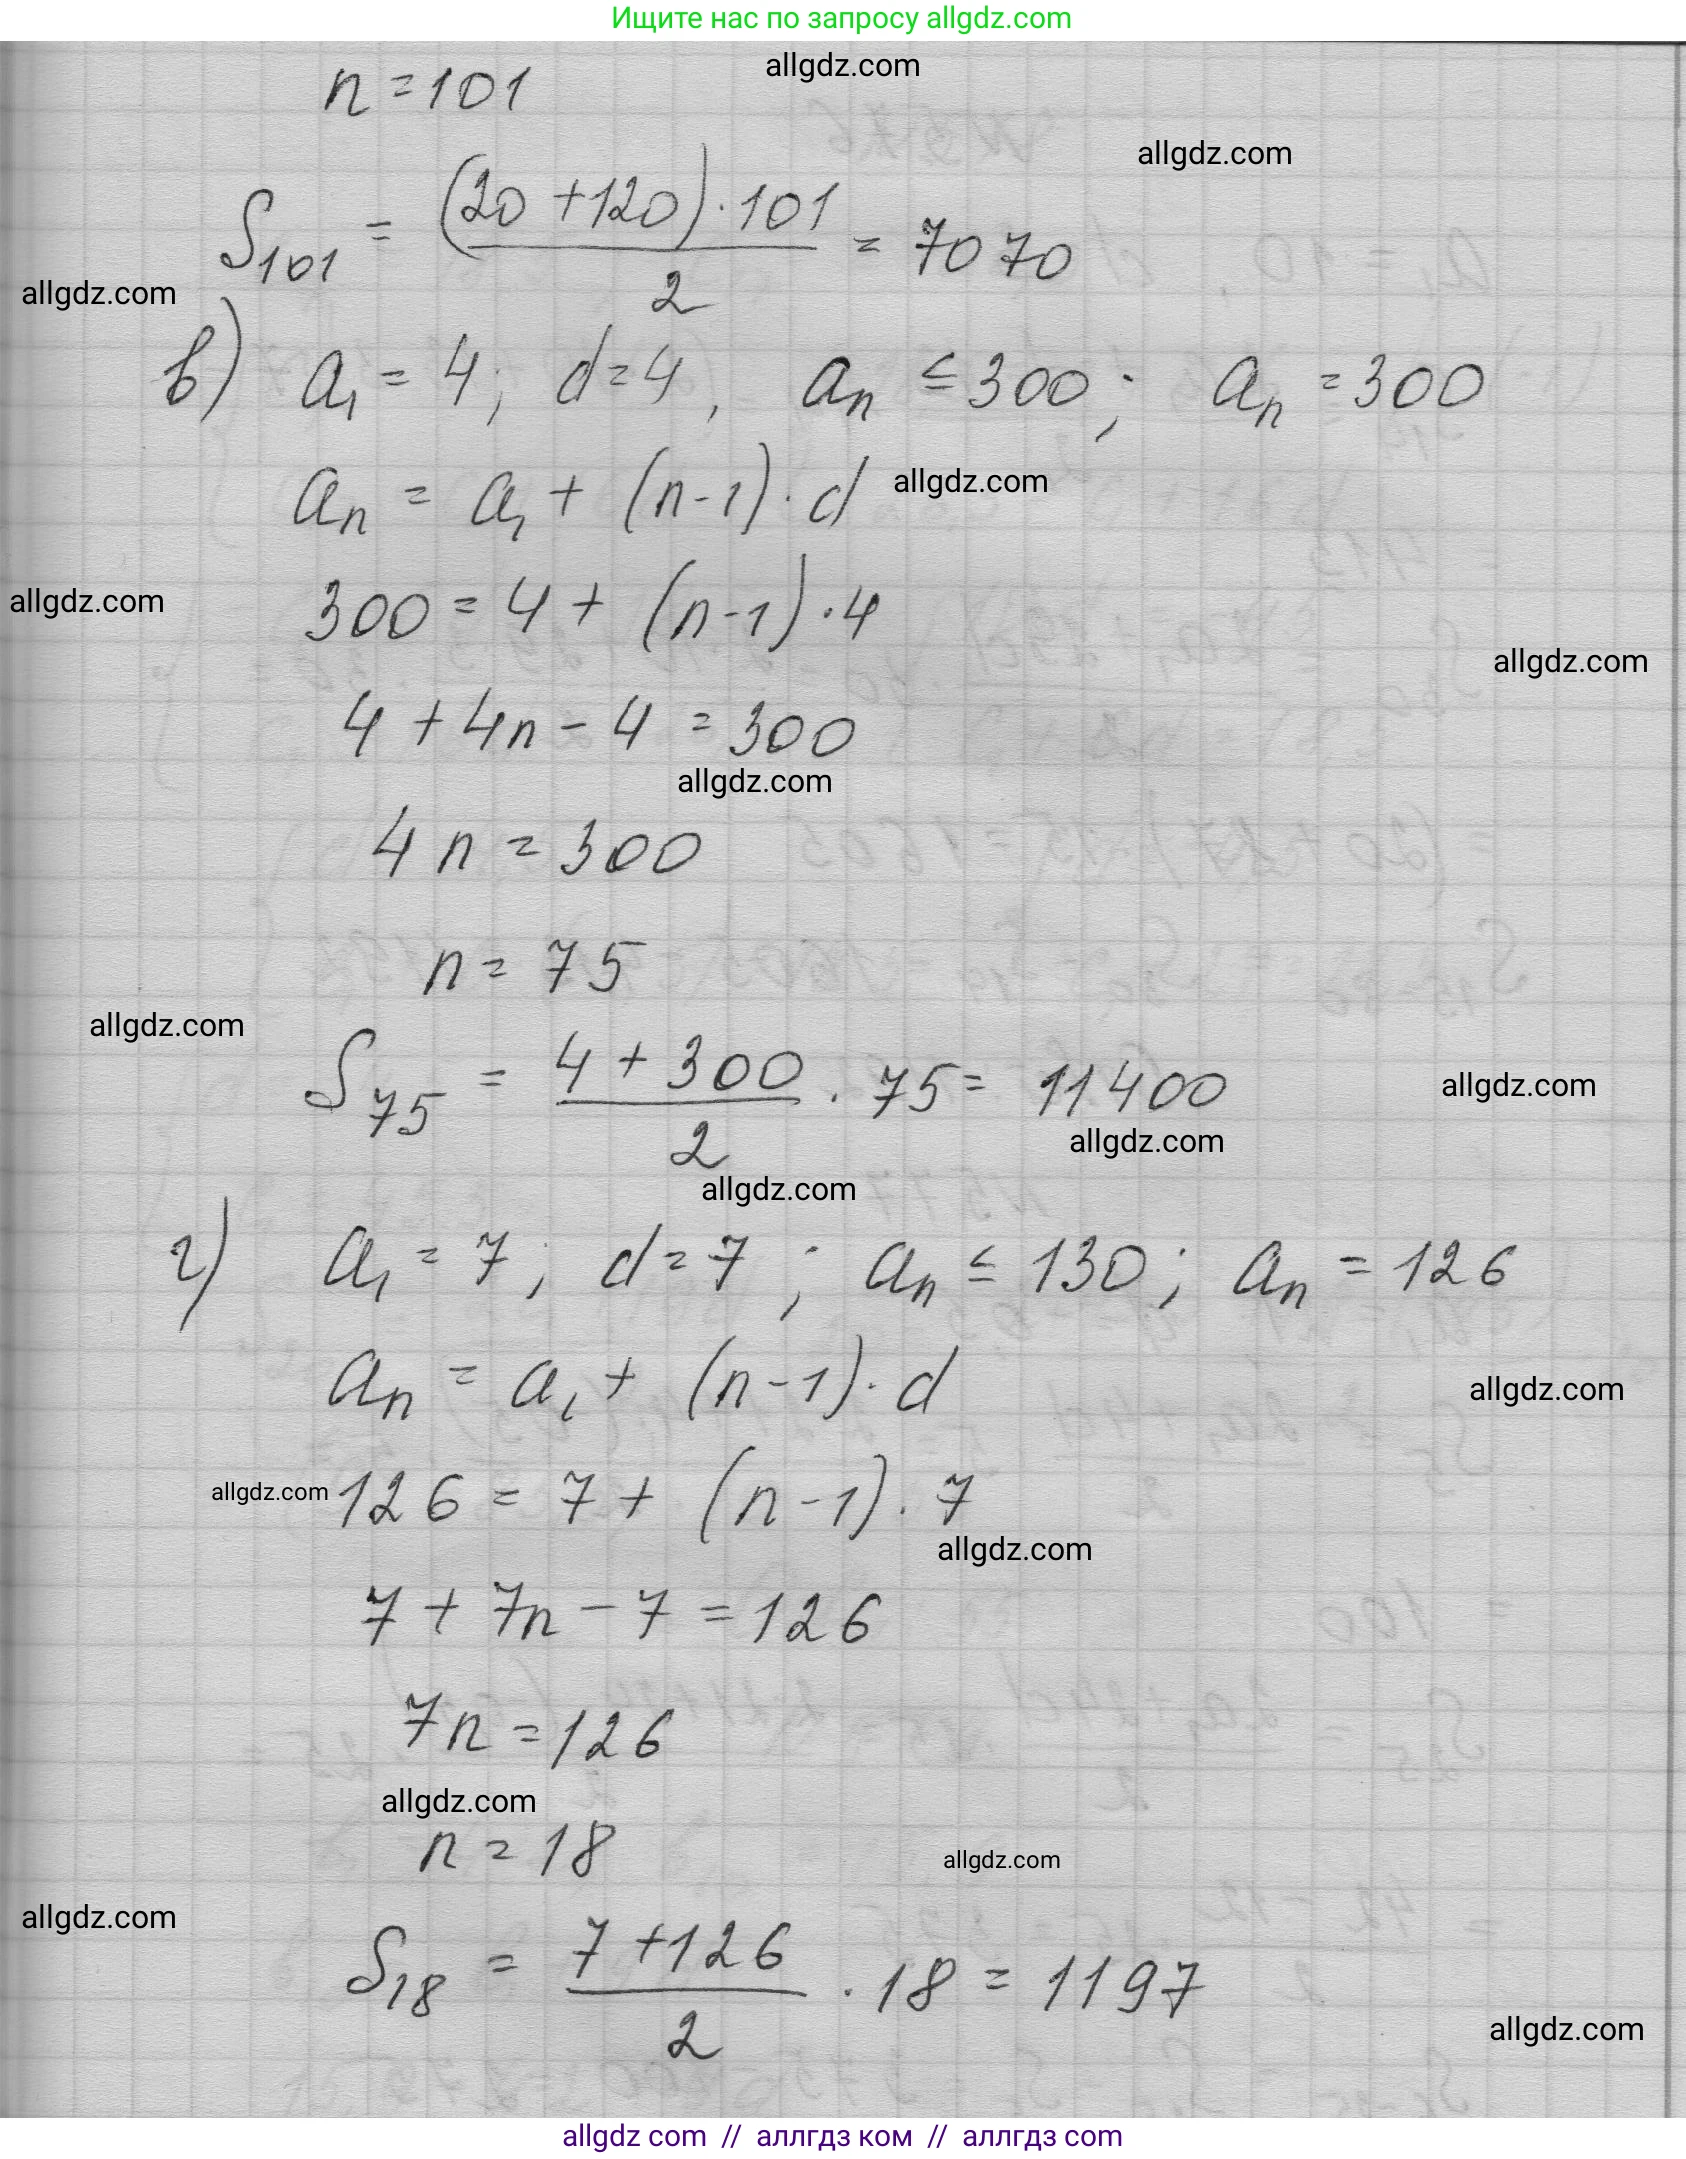 Ищите нас по запросу allgdz.com
allgdz.com
n = 101
allgdz.com
S₁₀₁ = (20 + 120) · 101 / 2 = 7070
allgdz.com
в) a₁ = 4; d = 4, aₙ ≤ 300; aₙ = 300
aₙ = a₁ + (n - 1) · d allgdz.com
allgdz.com 300 = 4 + (n - 1) · 4
allgdz.com
4 + 4n - 4 = 300
allgdz.com
4n = 300
n = 75
allgdz.com
S₇₅ = 4 + 300 / 2 · 75 = 11400 allgdz.com
allgdz.com
allgdz.com
г) a₁ = 7; d = 7; aₙ ≤ 130; aₙ = 126
aₙ = a₁ + (n - 1) · d allgdz.com
allgdz.com 126 = 7 + (n - 1) · 7
allgdz.com
7 + 7n - 7 = 126
7n = 126
allgdz.com
n = 18
allgdz.com
allgdz.com
S₁₈ = 7 + 126 / 2 · 18 = 1197
allgdz.com
allgdz com // аллгдз ком // аллгдз com